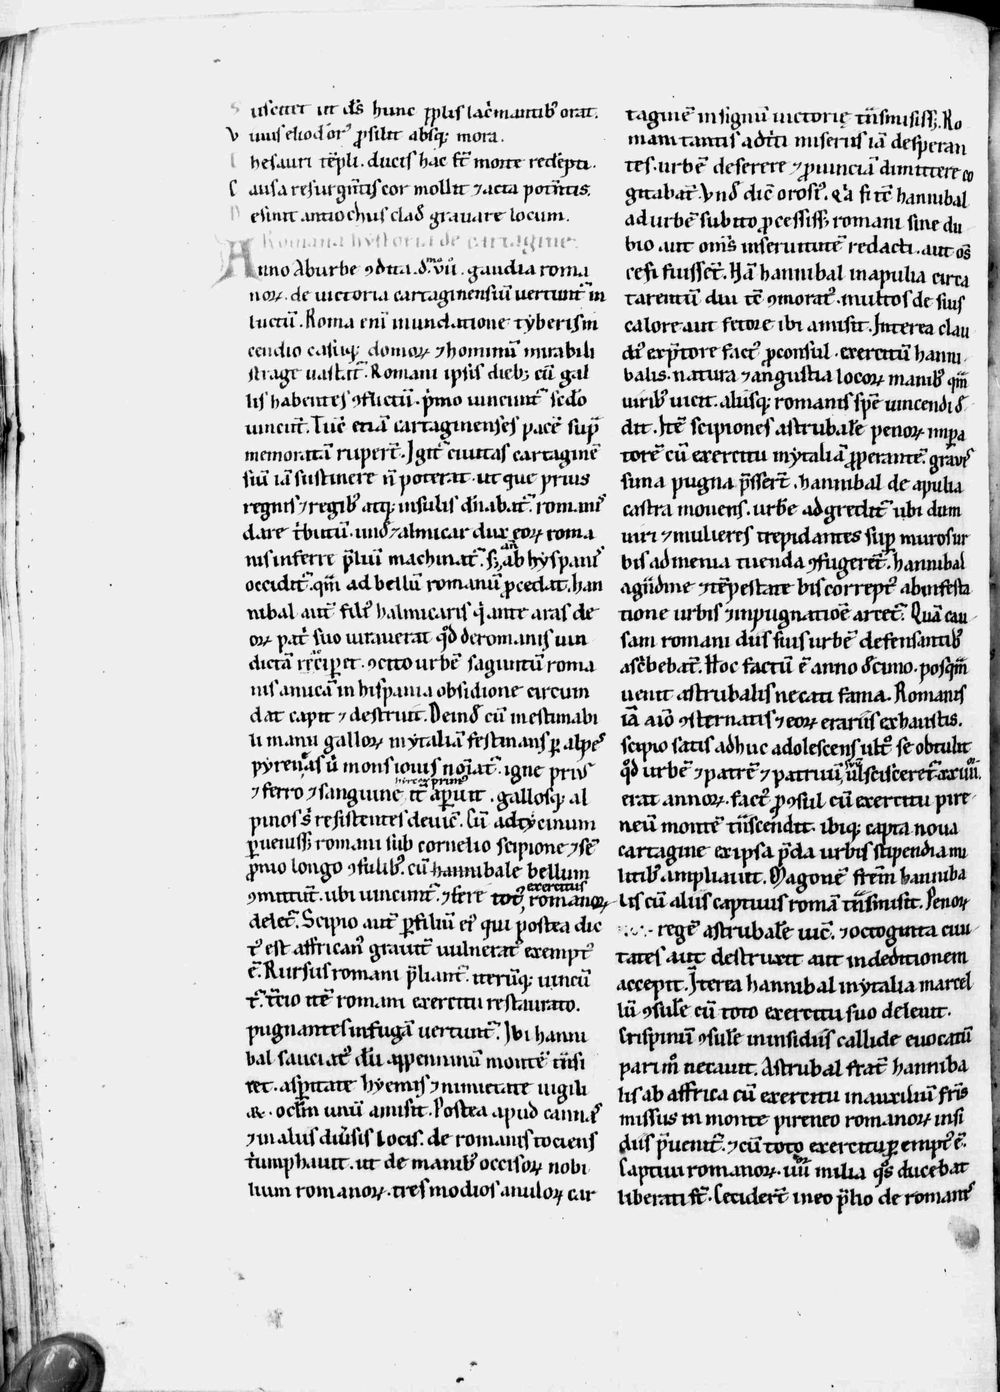 Suscitet ut ds̄ hunc p̄plis lac̄mantib orat.
Viuus eliodorꝰ ꝓsilit absq; mora.
Thesauri tēpli. ducis hac st̄ morte redēpti.
Causa resurgn̄tis cor mollit ⁊ acta potn̄tis.
Desinit antiochus clad̄ grauare locum.
Romana hystoria de cartagine.
Anno Ab urbe ꝯdita. d.vii. gaudia roma
noꝝ. de uictoria cartaginensiū uertunt̄ in
luctū. Roma eni inundatione tyberis in
cendio casuq; domoꝝ ⁊ hominū mirabili
strage uastat̄. Romani ipsis dieb; cū gal
lis habentes ꝯflictū. p̄mo uincunt̄ scd̄o
uincūt. Tūc etiā cartaginenses pacē sup̄
memoratā ruper̄t. Igit̄ ciuitas cartaginē
siū iā sustinere n̄ poterat. ut que prius
regnis ⁊ regib; atq; insulis dn̄abat̄. romanis
dare t̄butū. und̄ ⁊ almicar dux eoꝝ roma
nis inferre p̄liū machinat̄. s; ab hyspanis
occidit̄. qm̄ ad bellū romanū ꝓcedit. han
nibal aut̄ filiꝰ halmicaris q̄ ante aras de
oꝝ pat̄ suo iurauerat qd̄ de romanis uin
dictā reciperet. ꝯcito urbē saguntū roma
nis amicā in hispania obsidione circum
dat capit ⁊ destruit. Deind̄ cū inestimabi
li manu galloꝝ in ytaliā festinans ꝑ alpes
pyreneas ū mons iouis noīat̄. igne pris
hercꝰ primꝰ
⁊ ferro ⁊ sanguine it̄ aperuit. gallosq; al
pinos s̄ resistentes deuic̄. Cū ad tycinum
ꝑueniss; romani sub cornelio scipione ⁊ sē
p̄nio longo ꝯsulib; cū hannibale bellum
exercitus
ꝯmittūt. ubi uincunt̄. ⁊ fere totꝰ romanoꝝ
delet̄. Scipio aut̄ ꝑ filiū eiꝰ qui postea dic
tꝰ est affricanꝰ grauit̄ uulneratꝰ exemptꝰ
ē. Rursus romani p̄liant̄. iterūq; uincū
t̄. t̄cio itē romani exercitu restaurato.
pugnantes in fugā uertunt̄. Ibi hanni
bal sauciatꝰ dū appenninū montē tn̄si
ret. asp̄itate hyemis ⁊ nimietate uigili
æ. oclm̄ unū amisit. Postea apud cannas
⁊ in aliis diuersis locis. de romanis tociens
t̄umphauit. ut de manib; occisoꝝ nobi
lium romanoꝝ. tres modios anuloꝝ car
taginē in signū uictorię tn̄smisiss;. Ro
mani tantis adt̄ti miseriis iā desperan
tes. urbē deserere ⁊ ꝓuinciā dimittere co
gitabāt. Vnd̄ dic̄ orosiꝰ. Q̄a si tē hannibal
ad urbē subito ꝓcessiss; romani sine du
bio aut om̄s in seruitutē redacti. aut oc̄
cisi fuissēt. Hā hannibal in apulia circa
tarentū diu tē ꝯmoratꝰ. multos de suis
calore aut fetore ibi amisit. Interea clau
diꝰ exp̄tore factꝰ ꝓconsul. exercitū hanni
balis. natura ⁊ angustia locoꝝ manib; qm̄
uirib; uicit. aliisq; romanis spē uincendi d̄
dit. Itē scipiones astrubalē penoꝝ imp̄a
torē cū exercitu in ytaliā ꝓperantē. grauis
sima pugna p̄ssert̄. hannibal de apulia
castra mouens. urbē adgredit̄ ubi dum
uiri ⁊ mulieres trepidantes sup̄ muros ur
bis ad menia tuenda ꝯfugerēt̄. hannibal
agn̄dine ⁊ tēpestate bis correptꝰ ab infesta
tione urbis ⁊ inpugnatiōe arcet̄. Quā cau
sam romani diis suis urbē defensantib;
asc̄bebāt. Hoc factū ē anno d̄cimo. posqm̄
uenit astrubalis necati fama. Romanis
iā aīo ꝯsternatis ⁊ eoꝝ erariis exhaustis.
scipio satis adhuc adolescens ultꝰ se obtulit
qd̄ urbē ⁊ patrē ⁊ patruū ulscisceret̄. xxiiii.
erat annoꝝ. factꝰ ꝓꝯsul cū exercitu pire
neū montē tn̄scendit. ibiq; capta noua
cartagine ex ipsa p̄da urbis stipendia mi
litib; ampliauit. Magonē frem̄ hanniba
lis cū aliis captiuis romā tn̄smisit. Penoꝝ
regē astrubalē uic̄. ⁊ octoginta ciui
tates aut destruxit aut in deditionem
accepit. Interea hannibal in ytalia marcel
lū ꝯsulē cū toto exercitu suo deleuit.
Crispinū ꝯsulē in insidiis callide euocatū
pari mo necauit. Astrubal frat̄ hanniba
lis ab affrica cū exercitu in auxiliū frīs
missus in monte pireneo romanoꝝ insi
diis p̄uenit̄. ⁊ cū toto exercitu ꝑemptꝰ ē.
Captiui romanoꝝ. iiii milia qs̄ ducebat
liberati st̄. Ceciderūt in eo p̄lio de romanis